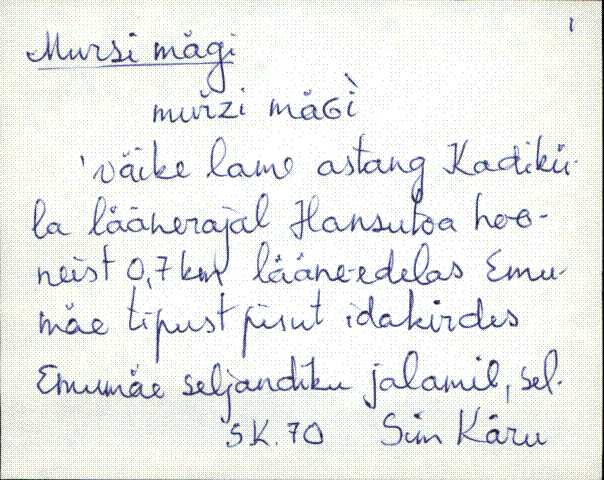 1
Mursi mägi
muřzi mäɢì
'väike lame astang Kadikü-
la läänerajal Hansutoa hoo-
neist 0,7 km lääne-edelas Emu-
mäe tipust pisut idakirdes
Emumäe seljandiku jalamil, sel-
SK. 70 Siim Käru